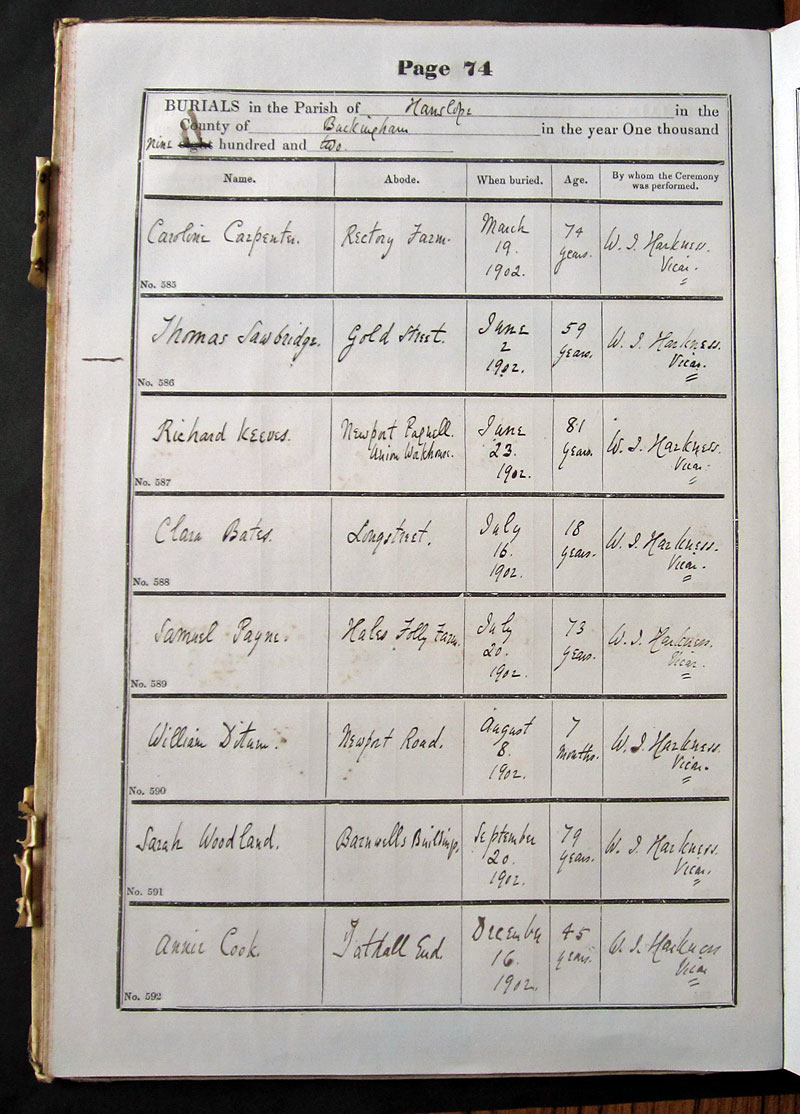 Page 74
BURIALS in the Parish of Hanslope in the
County of Buckingham in the year One thousand
nine eight hundred and two.
Name. Abode. When buried. Age. By whom the Ceremony was performed.
Caroline Carpenter. Rectory Farm. March 19. 1902. 74 years. W. J. Harkness. Vicar.
No. 585
Thomas Sawbridge. Gold Street. June 2 1902. 59 years. W. J. Harkness. Vicar.
No. 586
Richard Keeves. Newport Pagnell. Union Workhouse. June 23. 1902. 81 years. W. J. Harkness. Vicar.
No. 587
Clara Bates. Longstreet. July 16. 1902. 18 years. W. J. Harkness. Vicar.
No. 588
Samuel Payne. Hales Folly Farm. July 20. 1902. 73 years. W. J. Harkness. Vicar.
No. 589
William Ditum. Newport Road. August 8. 1902. 7 months. W. J. Harkness. Vicar.
No. 590
Sarah Woodland. Barnwells Buildings. September 20. 1902. 79 years. W. J. Harkness. Vicar.
No. 591
Annie Cook. Tathall End. December 16. 1902. 45 years. W. J. Harkness Vicar
No. 592